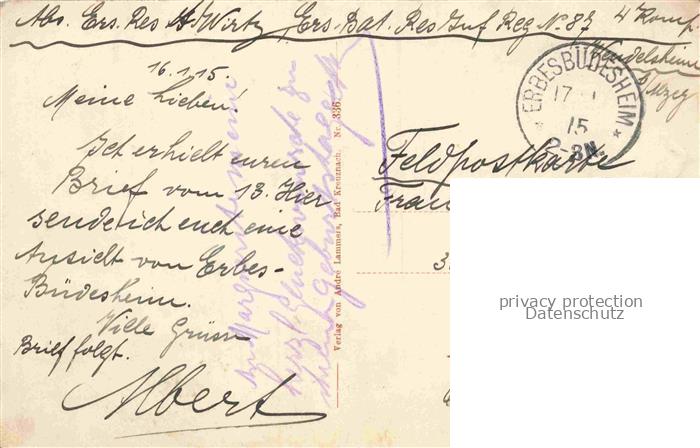 Abs. Ers. Res. A. Wirtz Ers. Bat. Res. Inf. Reg. N. 87 4 Komp.
Wendelsheim
b/ Alzey
ERBESBÜDESHEIM
17 1
15
2-3N.
16.1.15.
Meine Lieben!
Ich erhielt euren
Brief vom 13. Hier
sende ich euch eine
Ansicht von Erbes-
Büdesheim.
Viele Grüsse
Brief folgt.
Albert
An Margarete meine
herzl. Glückwünsche zu
ihrem Geburtstage
Verlag von André Lammers, Bad Kreuznach. Nr. 336.
Feldpostkarte
Frau
3
privacy protection
Datenschutz